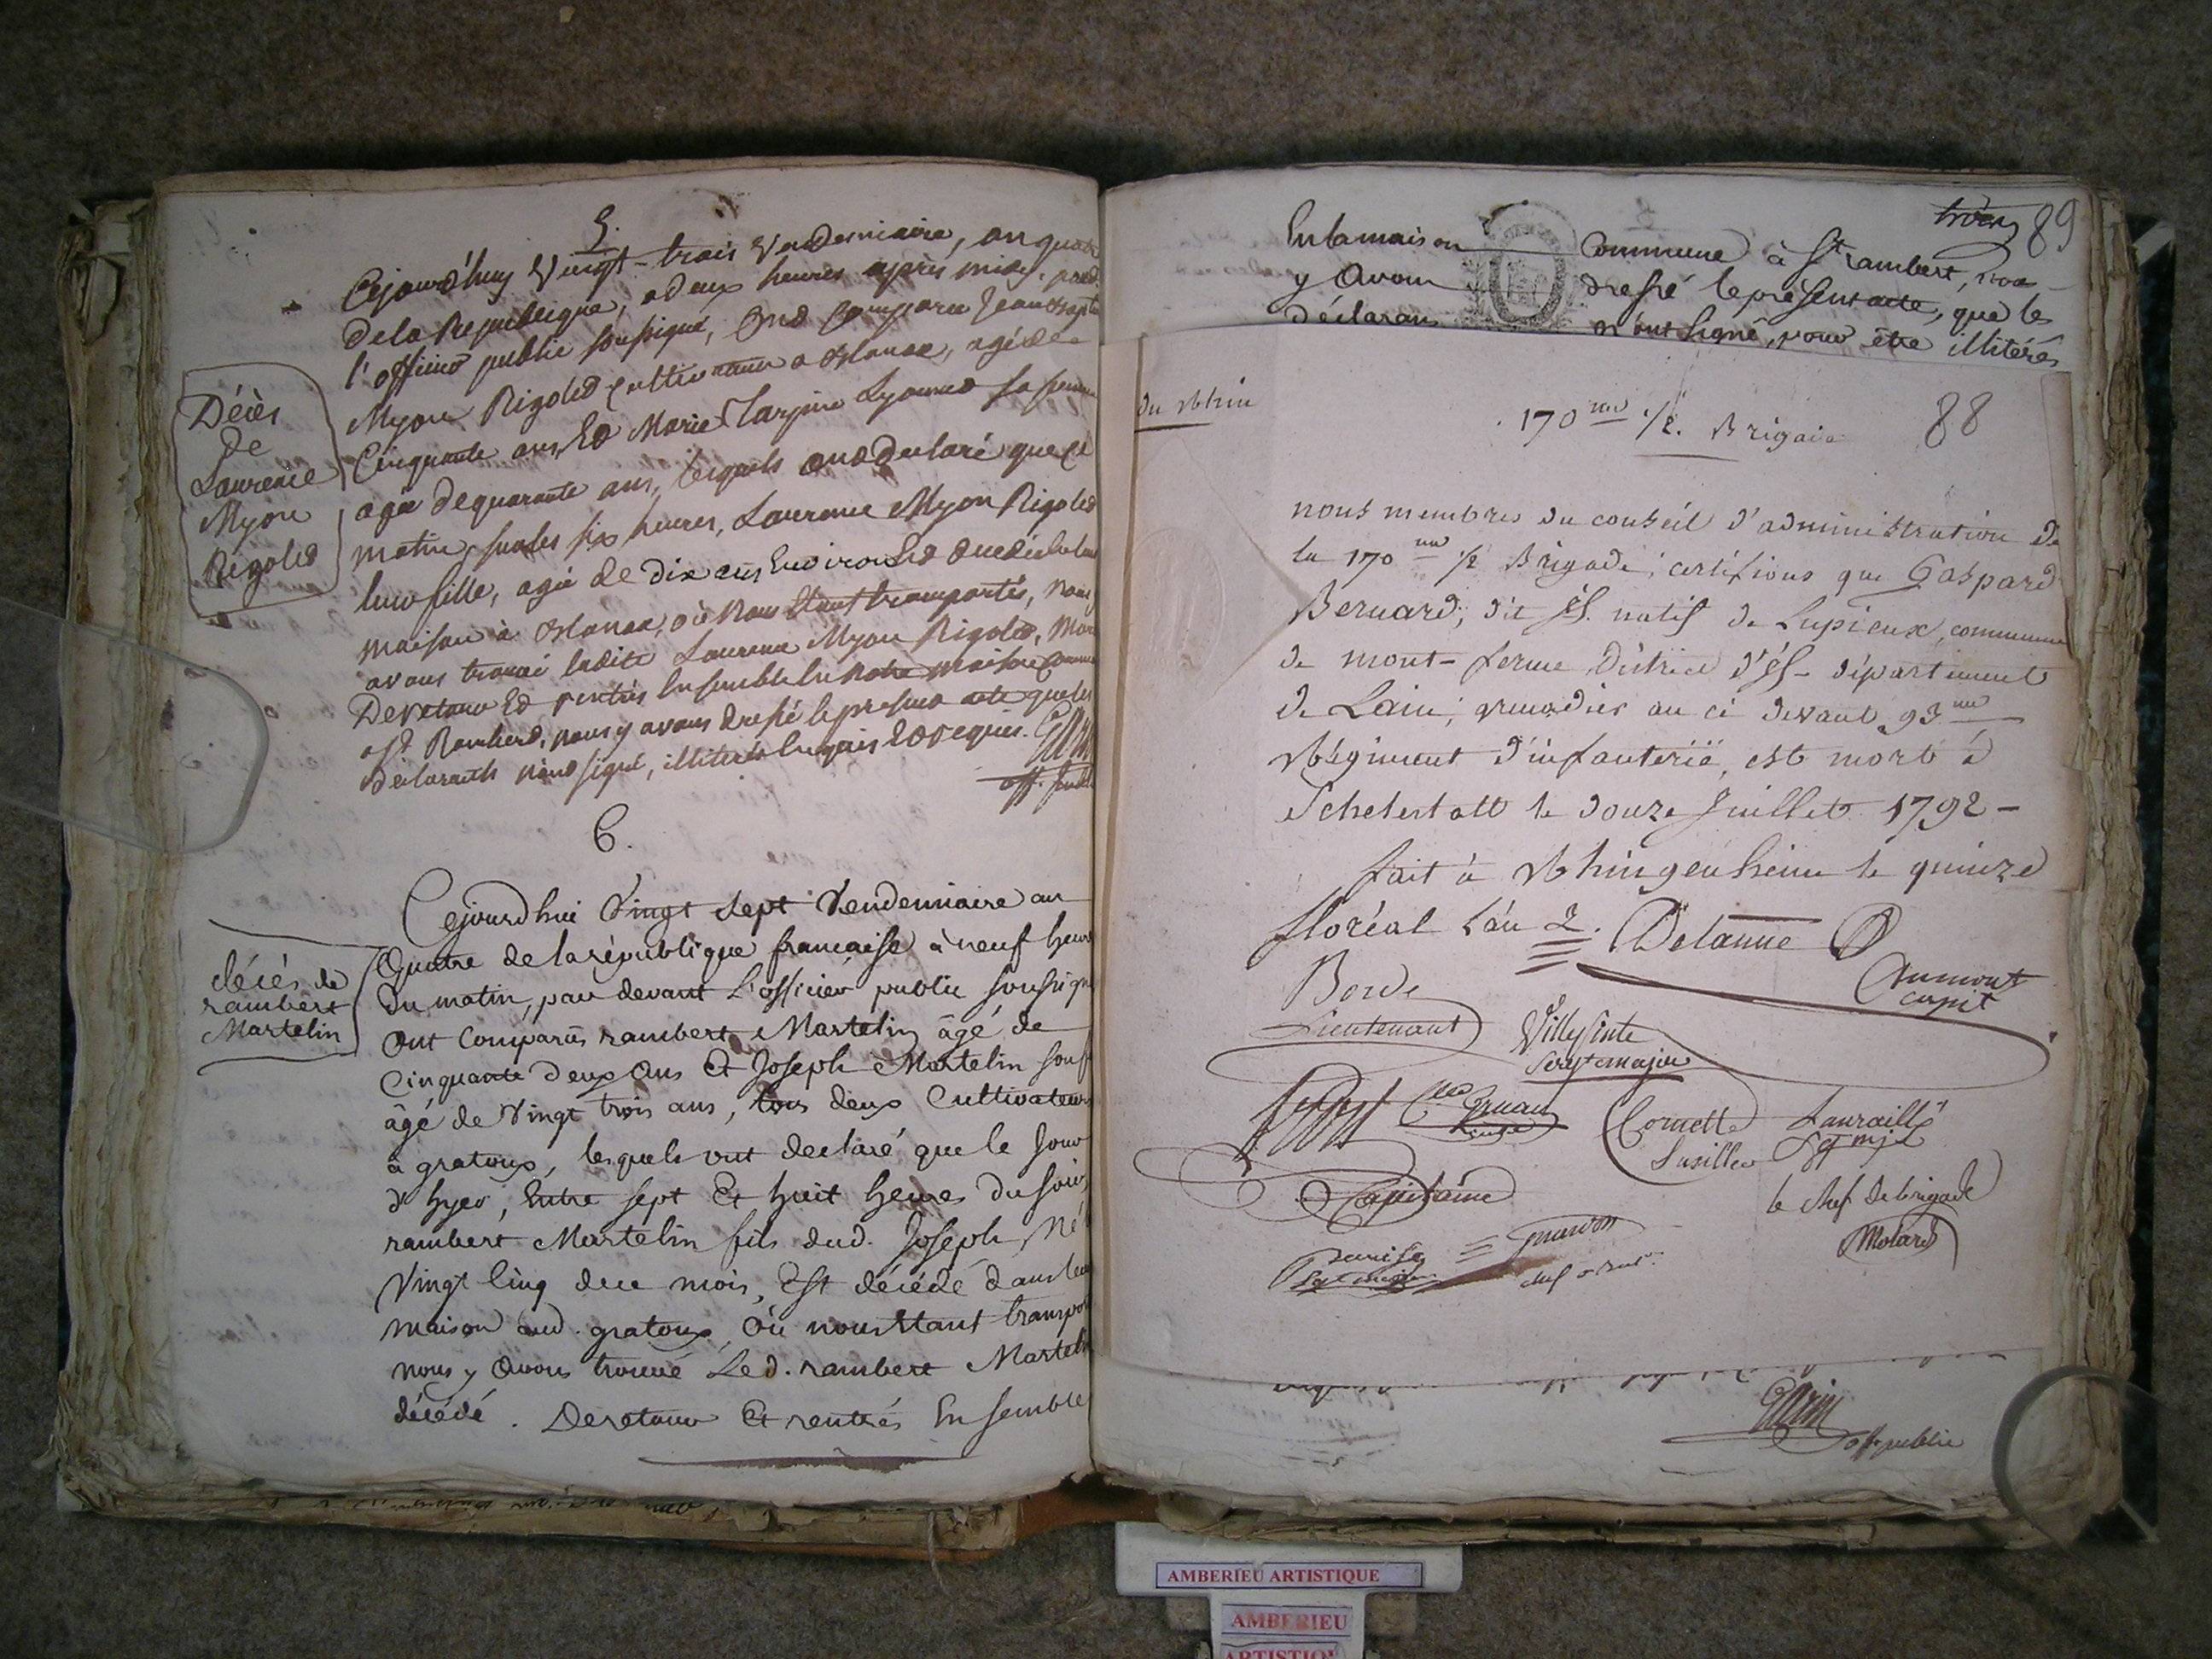 5.
Cejourd'huy Vingt-trois Vendemiaire, an quatre
de la Republique, a deux heures après midy, pard.
l'officier public soussigné, ond comparu Jean Bapti
Myon Rigoled cultivateur a Blanaz, agé de
Cinquante ans, Ed Marie Sarpine Lyonned sa femme
agée de quarante ans, lesquels ond declaré que ce
matin, sur les six heures, Laurence Myon Rigoled
leur fille, agée de dix ans Environ Ed decédée
maison à Blanaz, où nous étant transportés, nous
avons trouvé ladite Laurence Myon Rigoled, morte
De retour Ed rentrés Ensemble En notre maison commu
a St Ramberd, nous y avons dressé le present acte que les
déclarants n'ond signé, illiterés Enquis Ed requis.
off. publ
Décès
de
Laurence
Myon
Rigoled
6.
Cejourdhui Vingt sept Vendemiaire an
Quatre de la république francaise à neuf heure
Du matin, par devant L'officier public soussigné
Ont Comparus rambert Martelin âgé de
Cinquante deux ans Et Joseph Martelin
âgé de Vingt trois ans, tous deux Cultivateurs
à gratoux, lesquels ont declaré que le jour
d'hyer, Entre sept Et huit heures Du soir
rambert Martelin fils dud. Joseph, Né
Vingt Cinq de ce mois, Est décédé dans leur
maison aud. gratoux, Où nous Etant transpor
nous y avons trouvé Led. rambert Martelin
décédé. De retour Et rentrés Ensemble
décés de
rambert
Martelin
89
En la maison Commune à St rambert, nous
y Avons dressé le present acte, que les
déclarans n'ont signé, pour être illitérés
du Rhin
170me 1/2. Brigade 88
nous membres du conseil d'administration de
la 170me 1/2 Brigade, certifions que Gaspard
Bernard, dit St. natif de Lupieux, commune
de mont-ferme District d'St- département
de Lain, grenadier au ci devant 93me
Régiment d'infanterie, est mort à
Schelestatt le douze Juillet 1792-
fait à Rhingenheim le quinze
floréal l'an 2. Delanne
Aumont
capit
Borde
Lieutenant
Sergt major
Capitaine
Cornette
fusillier
le chef de brigade
Molard
off. public
AMBERIEU ARTISTIQUE
AMBERIEU
ARTISTIQUE